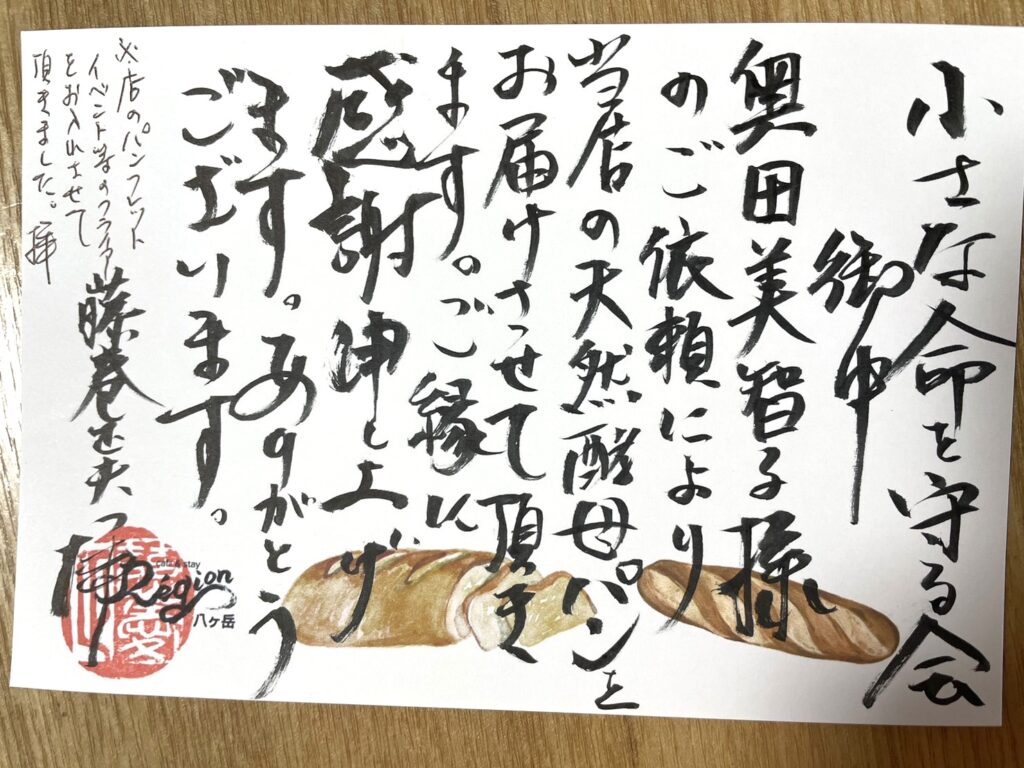 小さな命を守る会
御中
奥田美智子様
のご依頼により
当店の天然酵母パンを
お届けさせて頂き
ます。ご縁に
感謝申し上げ
ます。ありがとう
ございます。
当店のパンフレット
イベント等のフライヤー
をお入れさせて
頂きました。拝
藤巻
拝
café & stay
Région
八ヶ岳